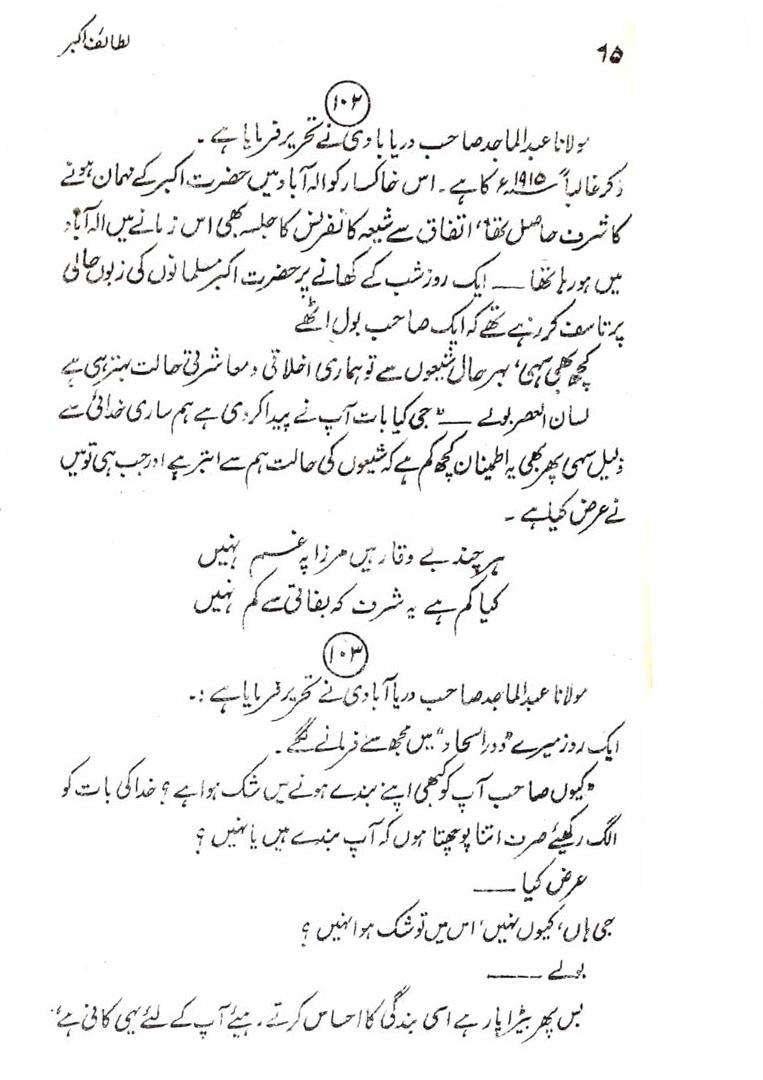 ۹۵
لطائف اکبر
۱۰۲
مولانا عبدالماجد صاحب دریابادی نے تحریر فرمایا ہے۔
ذکر غالباً ۱۹۱۵ء کا ہے۔ اس خاکسار کو الہ آباد میں حضرت اکبر کے مہمان ہونے
کا شرف حاصل تھا، اتفاق سے شیعہ کانفرنس کا جلسہ بھی اس زمانے میں الہ آباد
میں ہو رہا تھا ــــ ایک روز شب کے کھانے پر حضرت اکبر مسلمانوں کی زبوں حالی
پر تاسف کر رہے تھے کہ ایک صاحب بول اٹھے
کچھ بھی سہی، بہر حال شیعوں سے تو ہماری اخلاقی و معاشرتی حالت بہتر ہی ہے
لسان العصر بولے ــــ "جی کیا بات آپ نے پیدا کر دی ہے ہم ساری خدائی سے
ذلیل سہی پھر بھی یہ اطمینان کچھ کم ہے کہ شیعوں کی حالت ہم سے ابتر ہے اور جب ہی تو میں
نے عرض کیا ہے۔
ہر چند بے وقار ہیں مرزا پہ غم نہیں
کیا کم ہے یہ شرف کہ بفاتی سے کم نہیں
۱۰۳
مولانا عبدالماجد صاحب دریاآبادی نے تحریر فرمایا ہے :۔
ایک روز میرے "دور الحاد" میں مجھ سے فرمانے لگے۔
"کیوں صاحب آپ کو کبھی اپنے بندے ہونے میں شک ہوا ہے؟ خدا کی بات کو
الگ رکھئے صرف اتنا پوچھتا ہوں کہ آپ بندے ہیں یا نہیں؟
عرض کیا ــــ
جی ہاں، کیوں نہیں، اس میں تو شک ہوا نہیں؟
بولے ــــ
بس پھر بیڑا پار ہے اسی بندگی کا احساس کرتے رہیئے آپ کے لئے یہی کافی ہے"